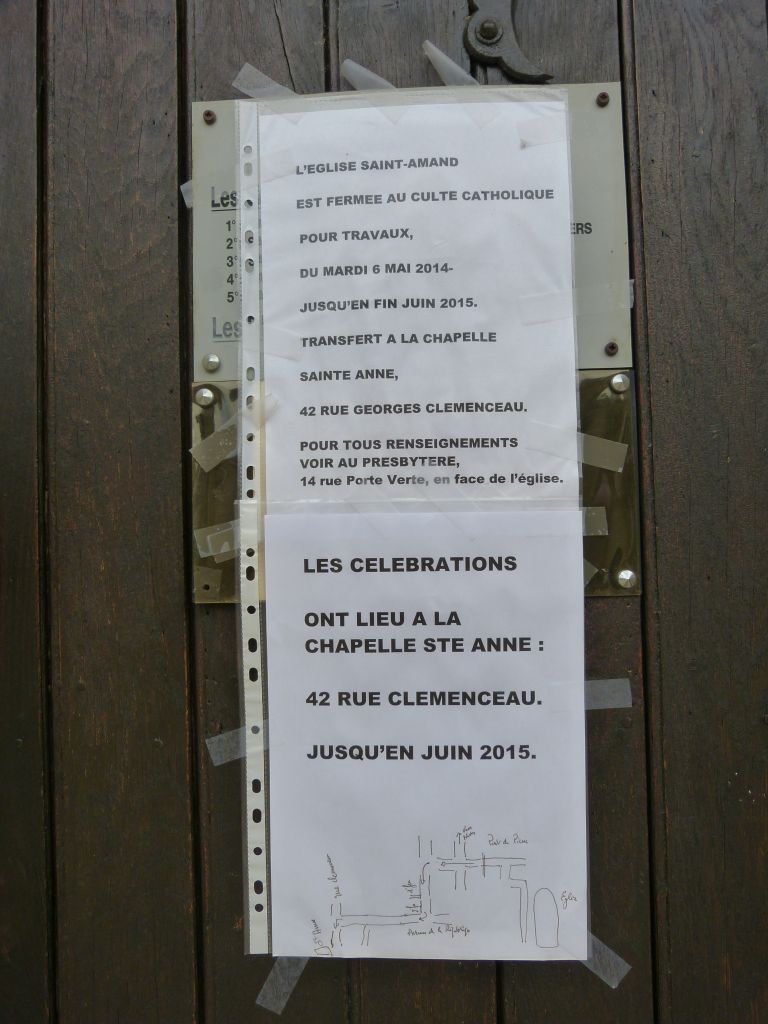 L'EGLISE SAINT-AMAND
EST FERMEE AU CULTE CATHOLIQUE
POUR TRAVAUX,
DU MARDI 6 MAI 2014-
JUSQU'EN FIN JUIN 2015.
TRANSFERT A LA CHAPELLE
SAINTE ANNE,
42 RUE GEORGES CLEMENCEAU.
POUR TOUS RENSEIGNEMENTS
VOIR AU PRESBYTERE,
14 rue Porte Verte, en face de l'église.
Les
1°
2°
3°
4°
5°
Les
ERS
LES CELEBRATIONS
ONT LIEU A LA
CHAPELLE STE ANNE :
42 RUE CLEMENCEAU.
JUSQU'EN JUIN 2015.
Eglise